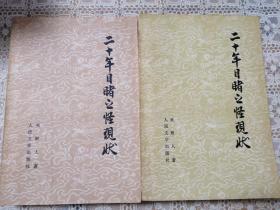 二十年目睹之怪現狀
吴趼人著
人民文学出版社
二十年目睹之怪現狀
吴趼人著
人民文学出版社